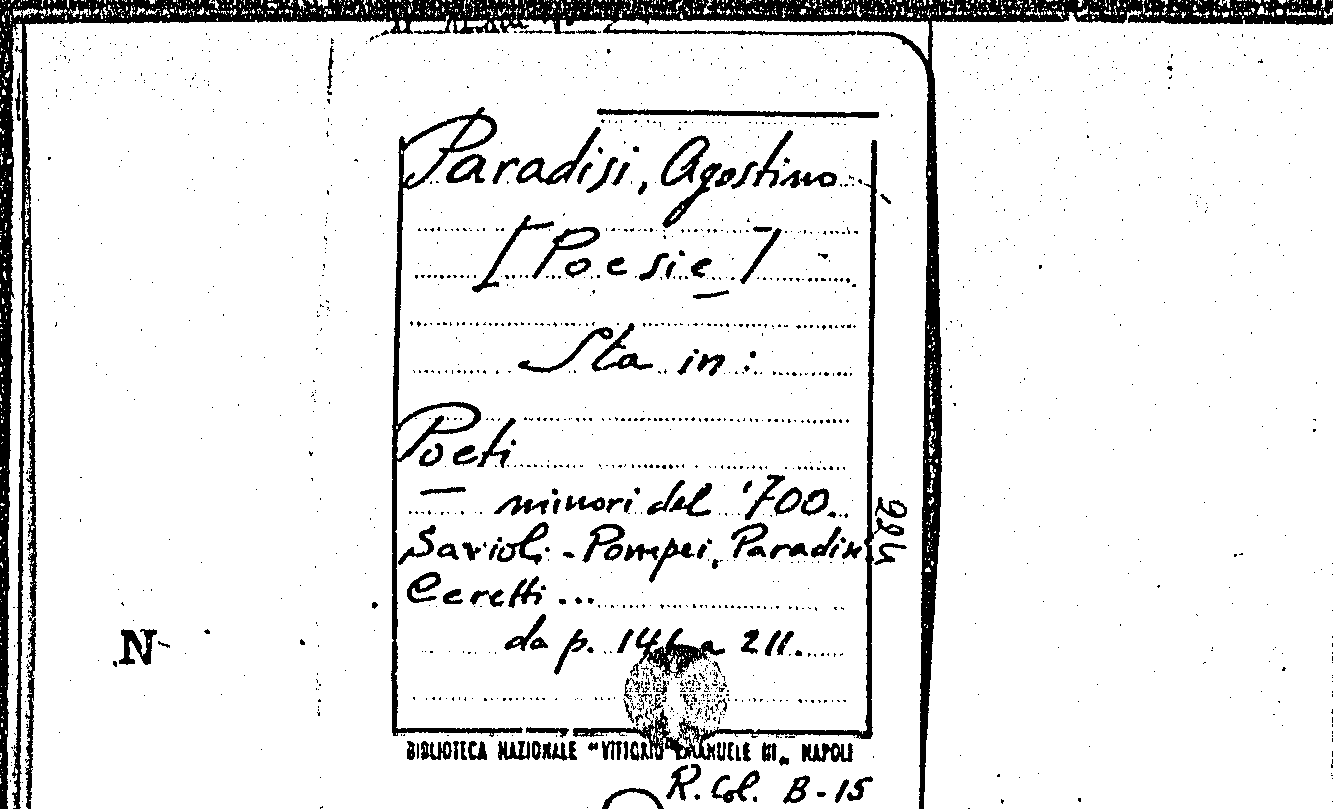 Paradisi, Agostino
[Poesie]
Sta in:
Poeti
minori del '700.
Savioli - Pompei, Paradisi
Ceretti ...
da p. a 211.
BIBLIOTECA NAZIONALE "VITTORIO EMANUELE III„ NAPOLI
R. Col. B-15
N